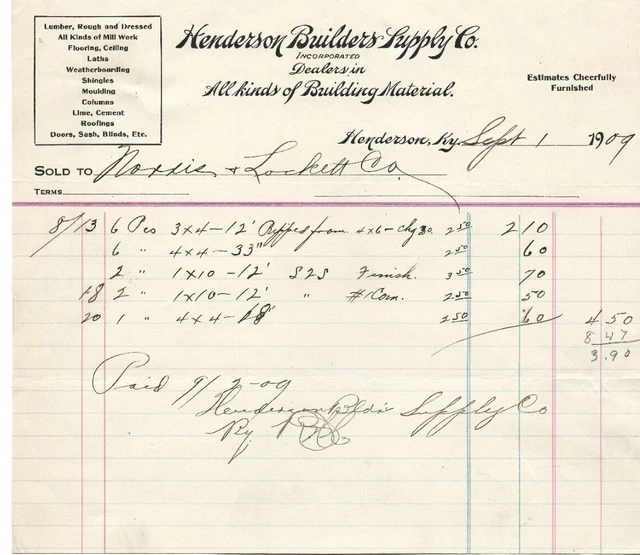 Lumber, Rough and Dressed
All Kinds of Mill Work
Flooring, Ceiling
Laths
Weatherboarding
Shingles
Moulding
Columns
Lime, Cement
Roofings
Doors, Sash, Blinds, Etc.
Henderson Builders Supply Co.
INCORPORATED
Dealers in
All kinds of Building Material.
Estimates Cheerfully
Furnished
Henderson, Ky. Sept 1 1909
SOLD TO Norris & Lockett Co.
TERMS
8/13 6 Pcs 3x4-12' Ripped from 4x6- 2 50 2 10
6 " 4x4-33" 2 50 60
2 " 1x10-12' S2S Finish. 3 50 70
18 2 " 1x10-12' " #1 Com. 2 50 50
20 1 " 4x4-18' 2 50 60 4 50
8 47
3.90
Paid 9/2-09
Henderson Bldrs Supply Co